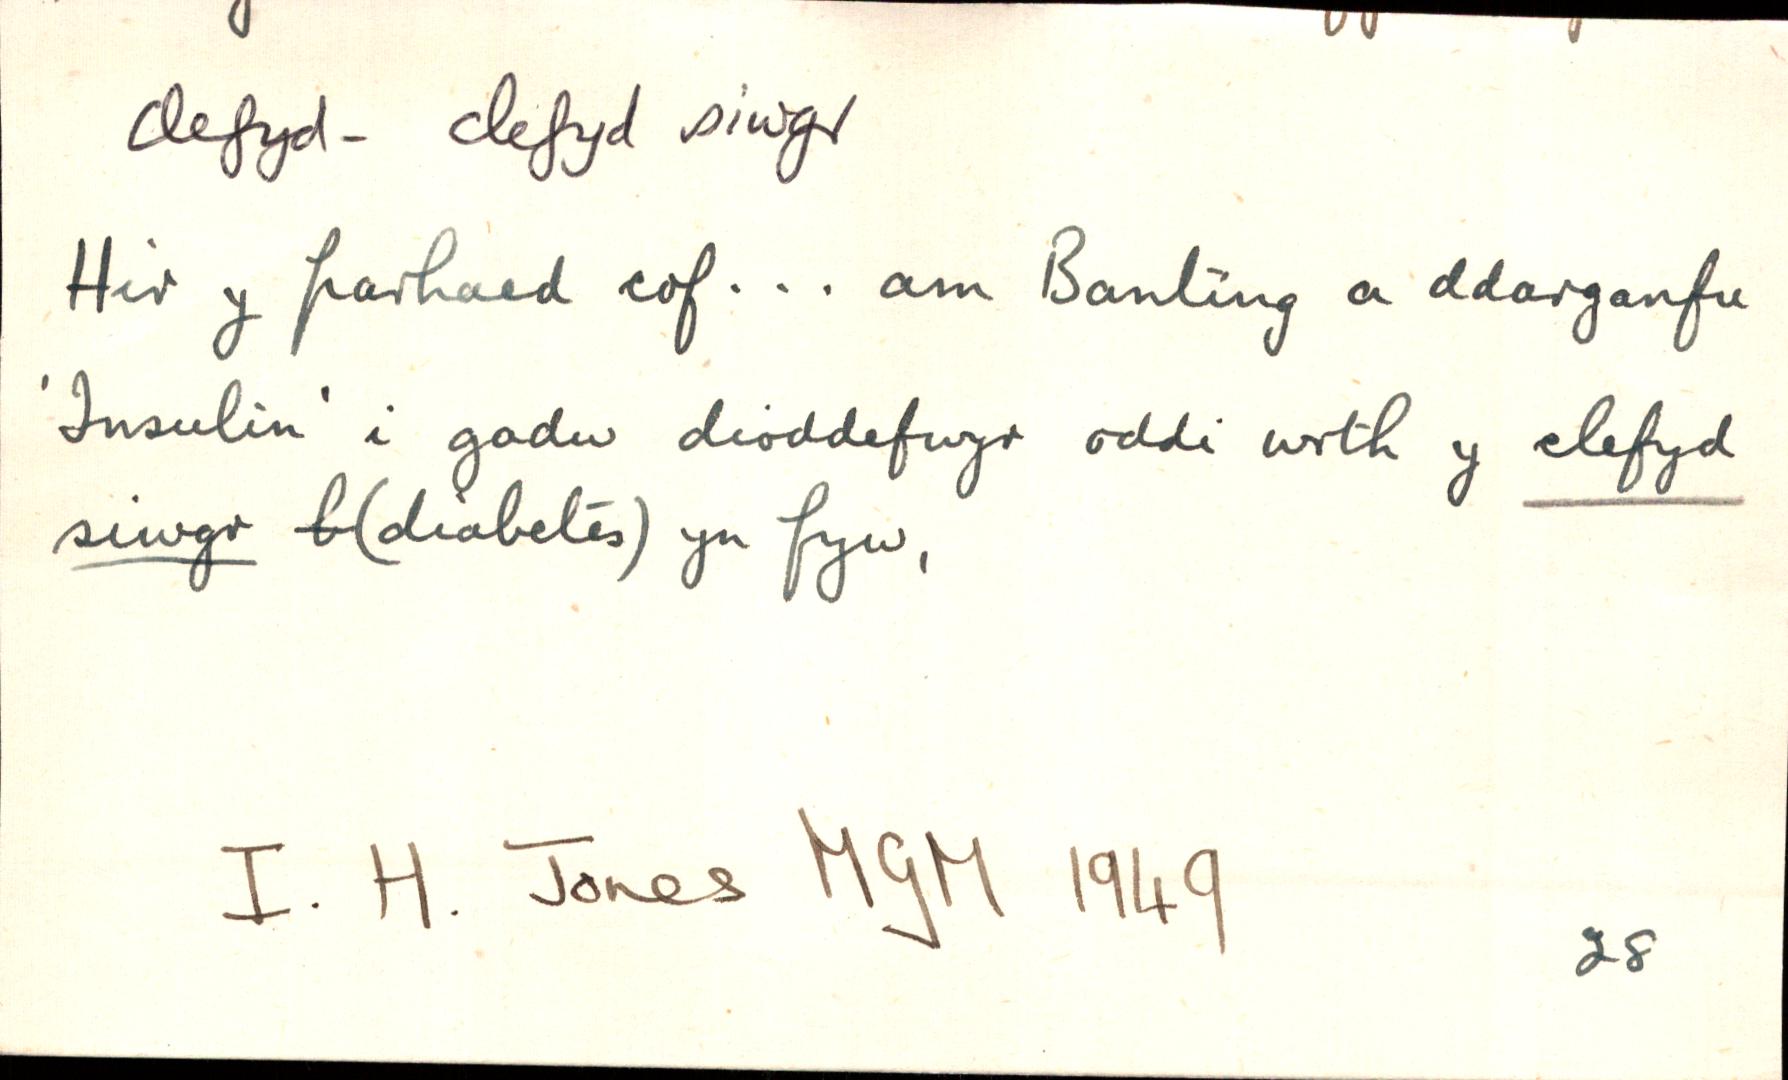 clefyd - clefyd siwgr
Hir y parhaed cof... am Banting a ddarganfu
'Insulin' i gadw dioddefwyr oddi wrth y clefyd
siwgr (diabetes) yn fyw,
I. H. Jones MGM 1949
28